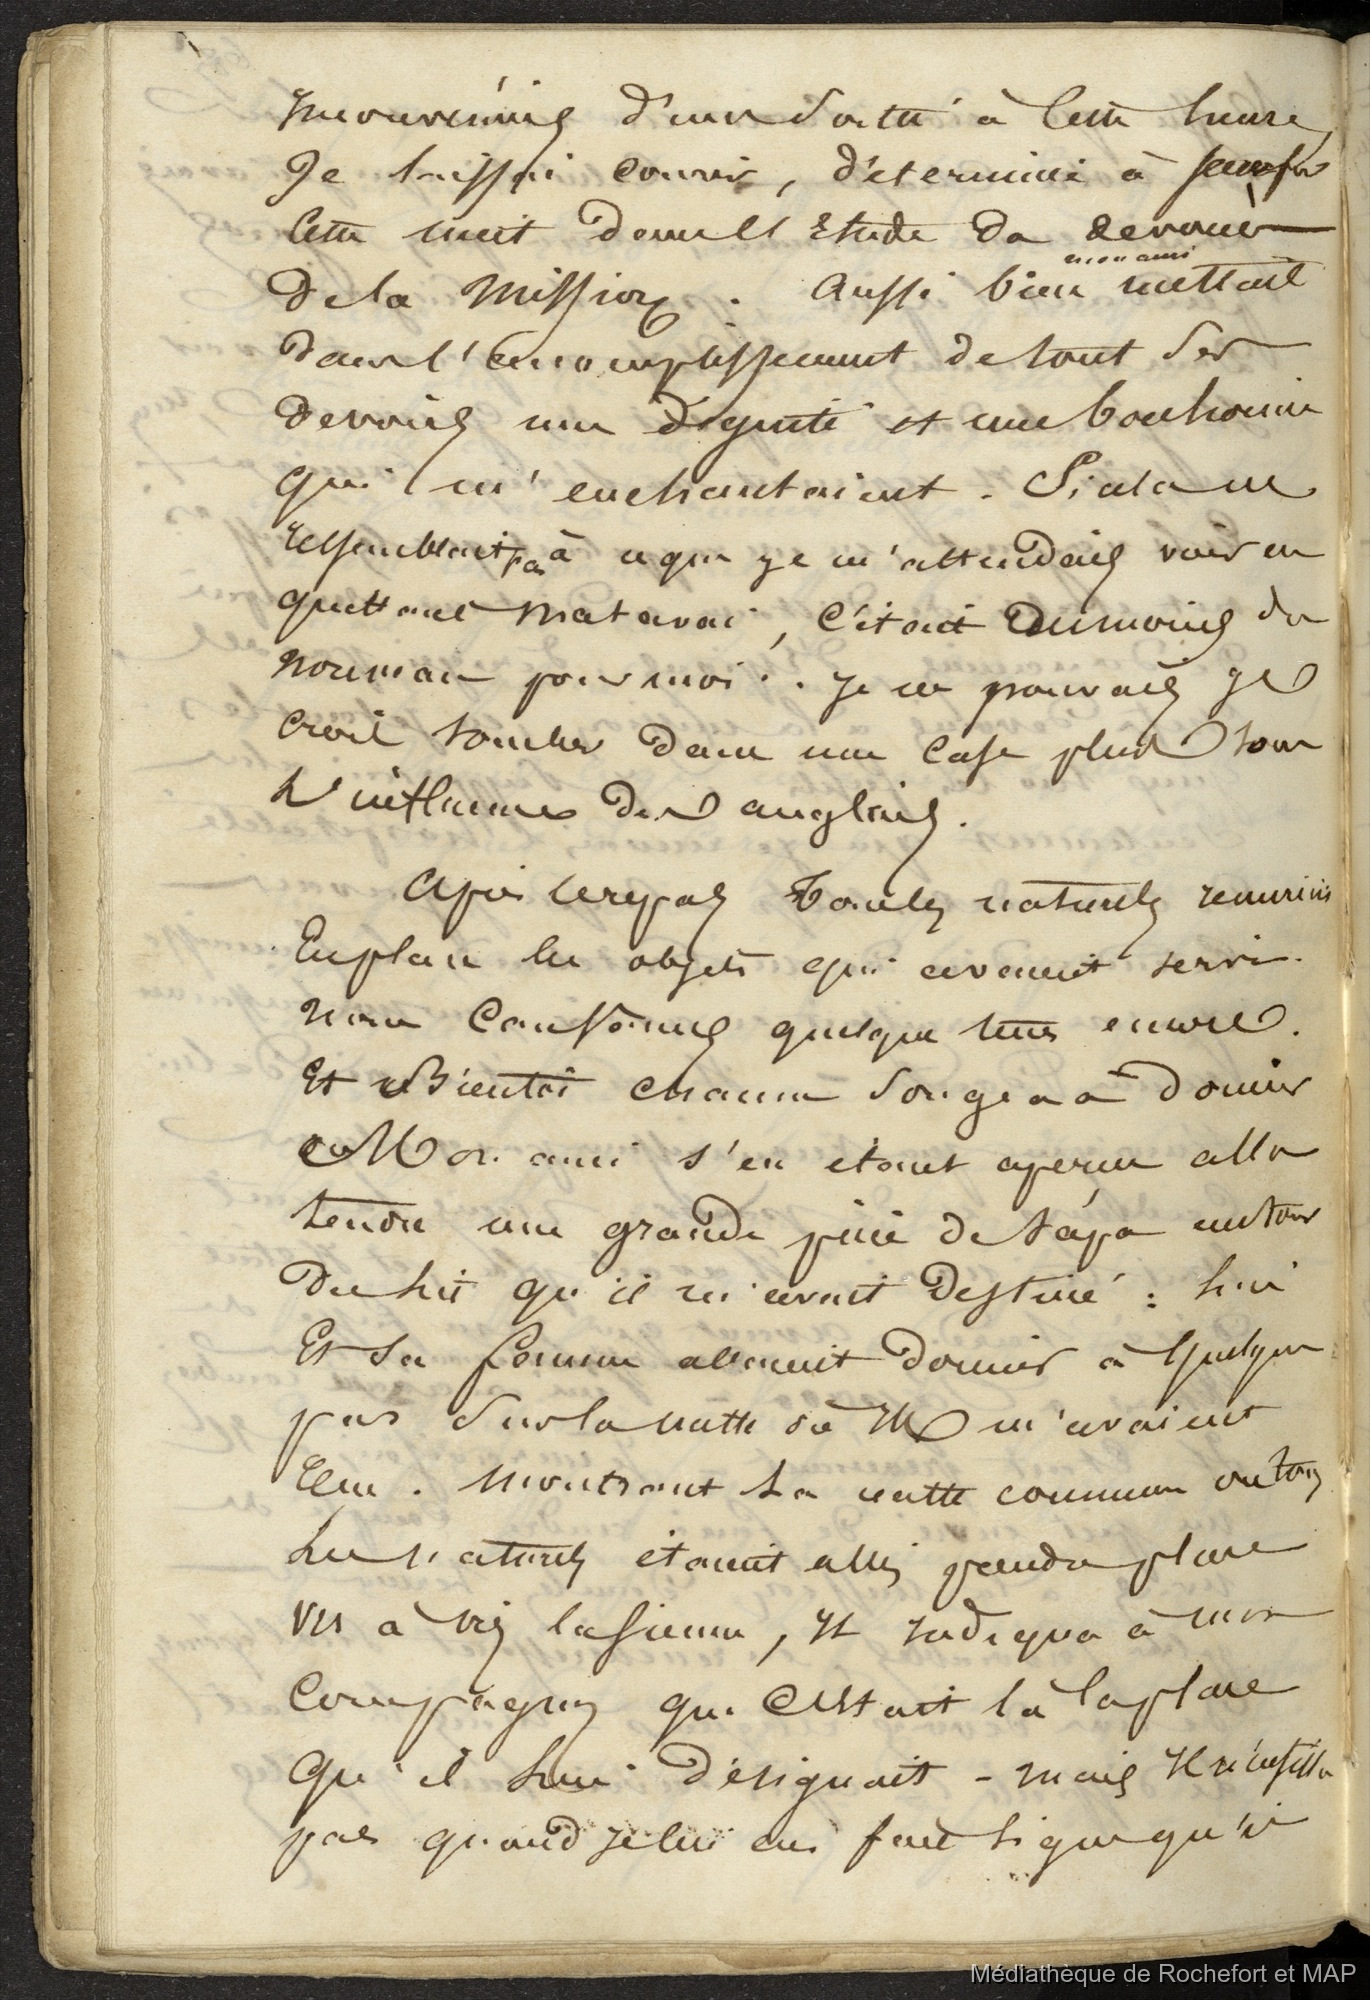 d'une Sortie à Cette heure,
Je laissai courir, déterminé à passer
Cette nuit dans l'Etude Da devoir
De la Mission. Aussi bien mon ami mettait
Dans l'accomplissement de tout Ses
Devoirs une Dignité et une bonhomie
qui m'enchantaient. Si cela ne
Ressemblait pas à ce que je m'attendais voir en
quittant Matavai, C'était Du moins du
nouveau pour moi. Je ne pouvais je
Crois tomber Dans une Case plus Sous
L'influence Des anglais.
Après le repas Tous les naturels remirent
En place les objets qui avaient servi.
nous Causames quelque tems encore.
Et Bientôt chacun Songea à Dormir
Mon ami s'en étant aperçu alla
tendre une grande pièce de tapa autour
Du lit qu'il m'avait Destiné : Lui
Et Sa femme allaient Dormir à quelques
pas Sur la natte où Ils m'avaient
Reçu. Montrant La natte commune où tous
Les naturels étaient allés prendre place
vis à vis la sienne, Il Indiqua à mon
Compagnon que C'était là la place
Qu'il Lui Désignait - mais Il n'insista
pas quand je lui eus fait Signe qu'il